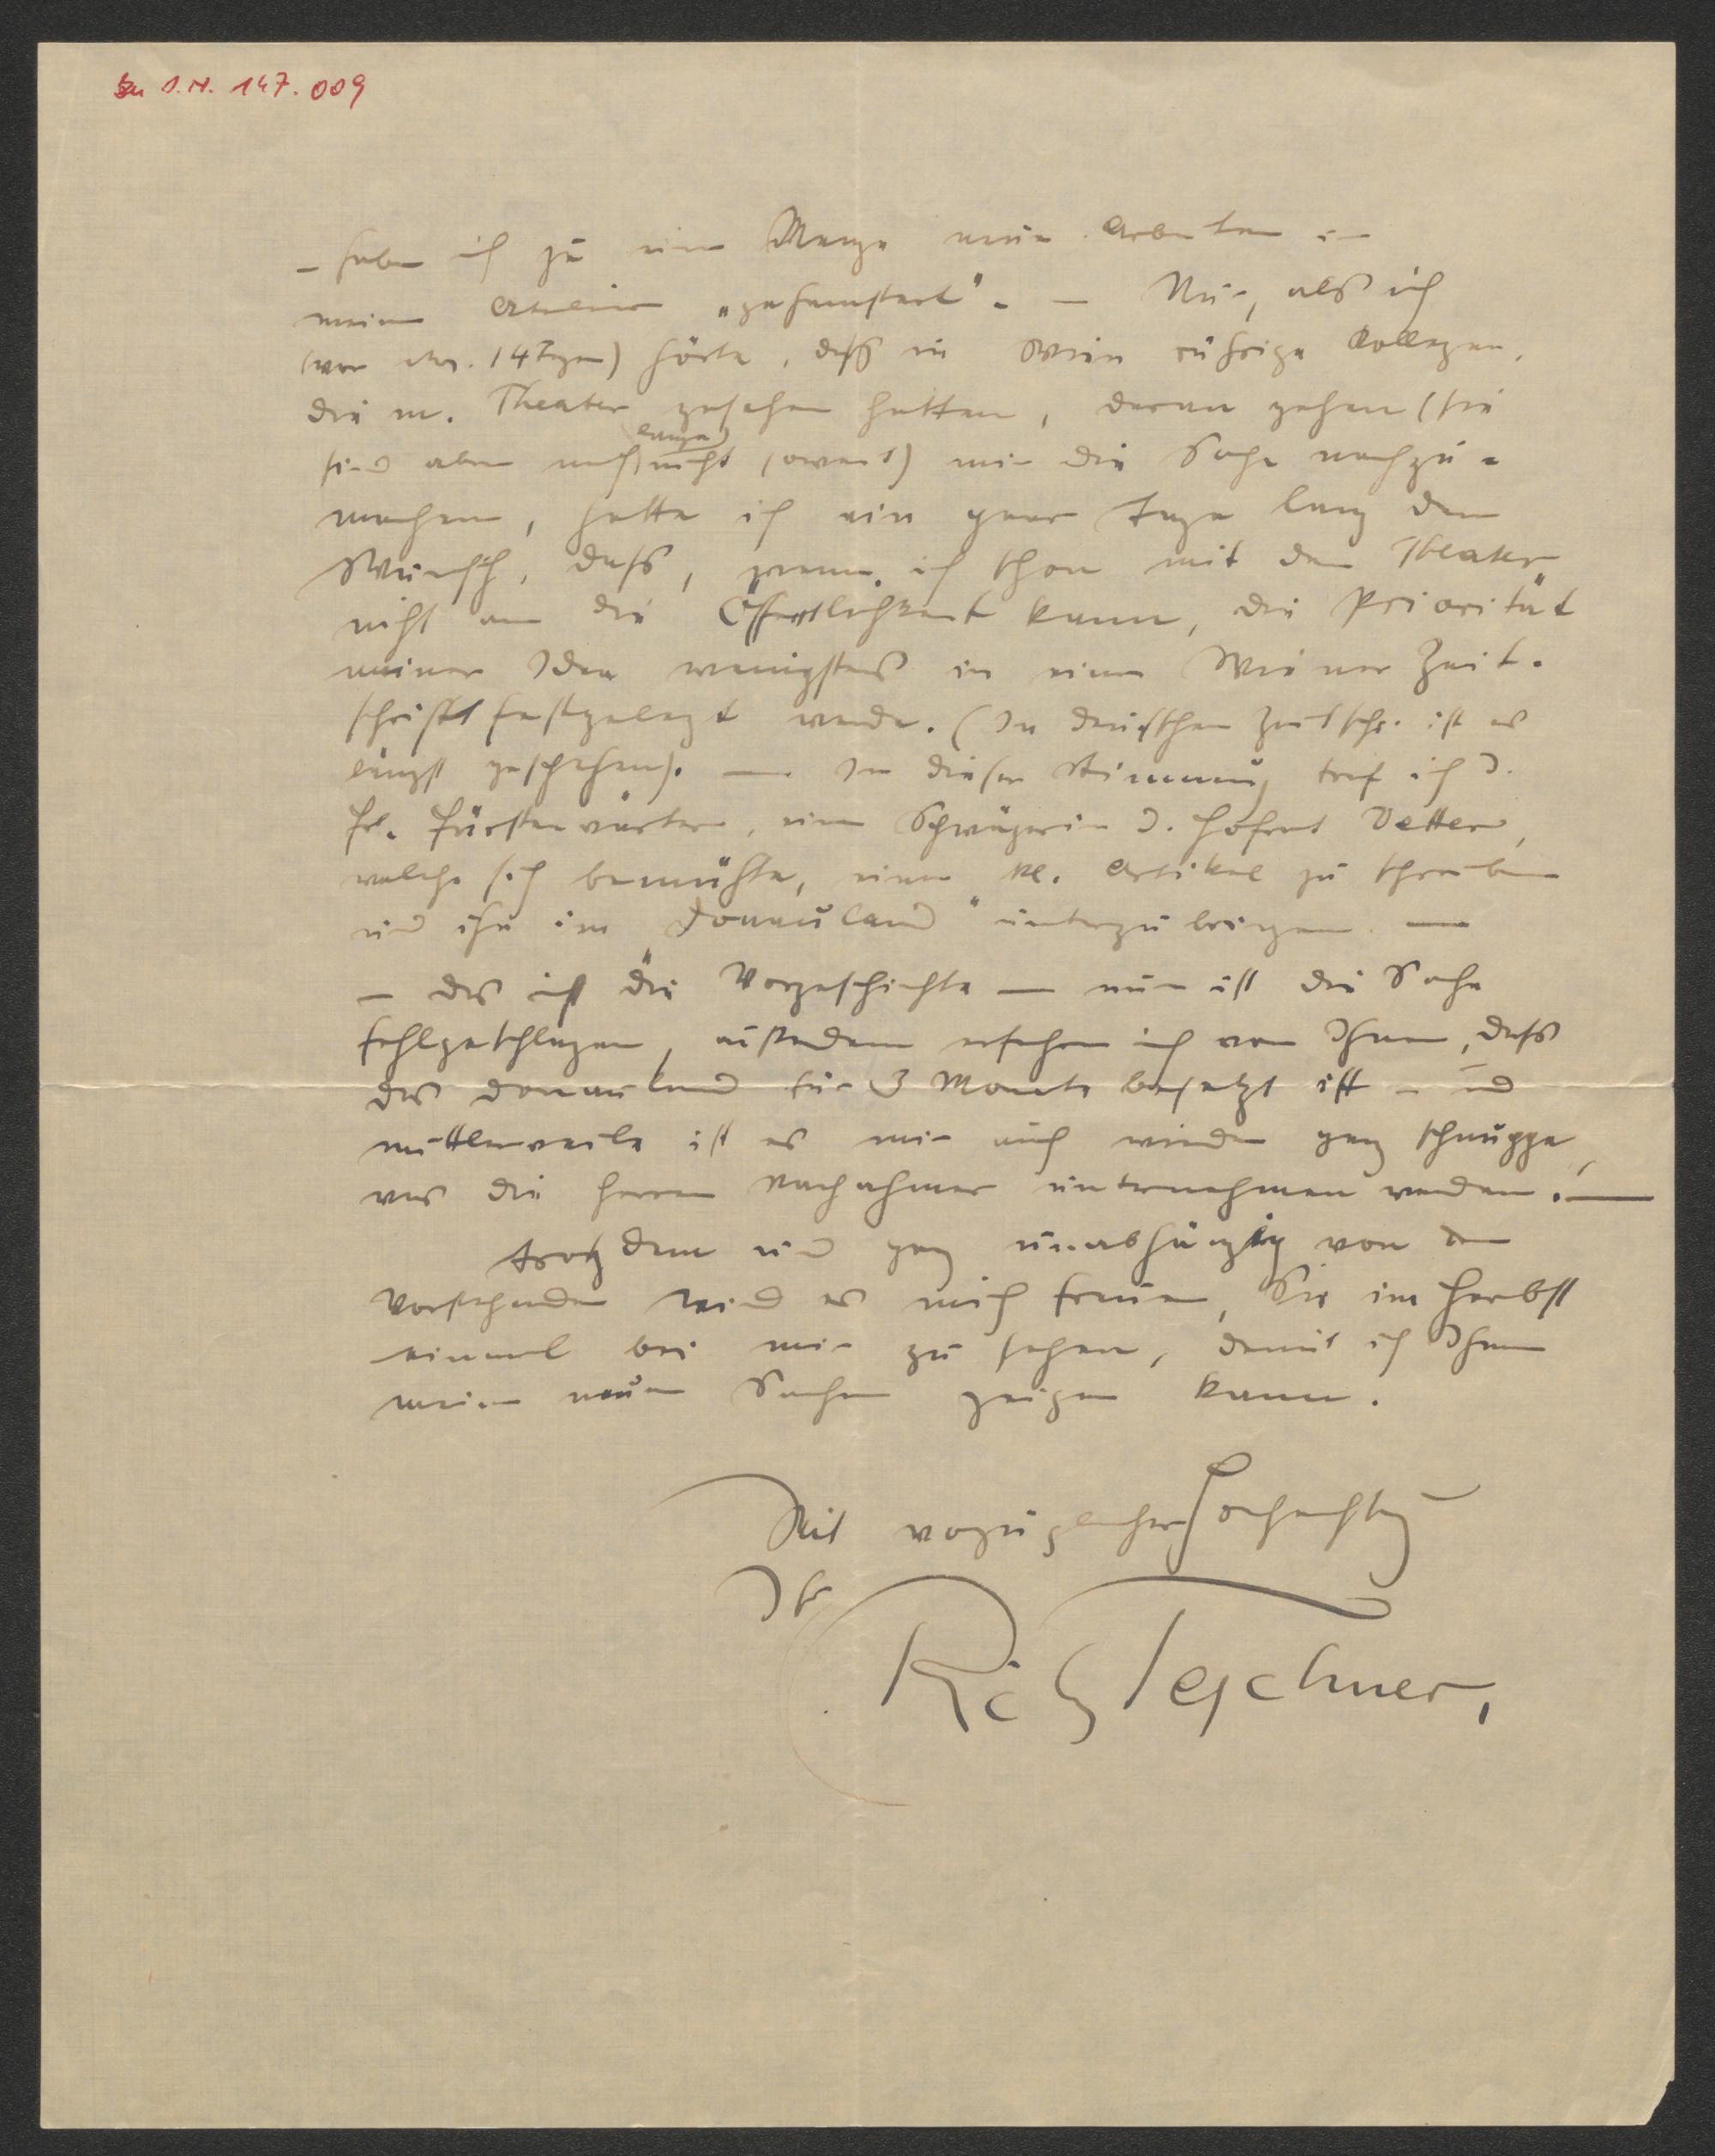 Zu I.N. 147.009
– habe ich ja eine Menge neue Arbeiten in
meinem Atelier „gehamstert“. — Nur, als ich
(vor etw. 14 Tagen) hörte, daß in Wien rührige Kollegen,
die m. Theater gesehen hatten, daran gehen (sie
sind aber noch lange nicht soweit) mir die Sache nachzu-
machen, hatte ich ein paar Tage lang den
Wunsch, daß, wenn ich schon mit dem Theater
nicht an die Öffentlichkeit kann, die Priorität
meiner Idee wenigstens in einer Wiener Zeit-
schrift festgelegt werde. (In deutschen Zeitschr. ist es
längst geschehen). — In dieser Stimmung traf ich d.
Frl. Fürstenwärter, eine Schwägerin d. Hofrat Vetter,
welche sich bemühte, einen kl. Artikel zu schreiben
und ihn im „Donauland“ unterzubringen. —
– das ist die Vorgeschichte — nun ist die Sache
fehlgeschlagen, außerdem erfahre ich von Ihnen, daß
das Donauland für 3 Monate besetzt ist – und
mittlerweile ist es mir auch wieder ganz schnuppe,
was die Herren Nachahmer unternehmen werden. —
Trotzdem und ganz unabhängig von dem
Vorstehenden wird es mich freuen, Sie im Herbst
einmal bei mir zu sehen, damit ich Ihnen
meine neuen Sachen zeigen kann.
Mit vorzüglicher Hochachtung
Ihr
Rich Teschner,